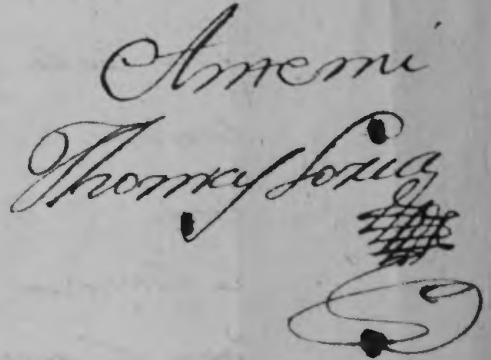 Antemi
Thomas Soria